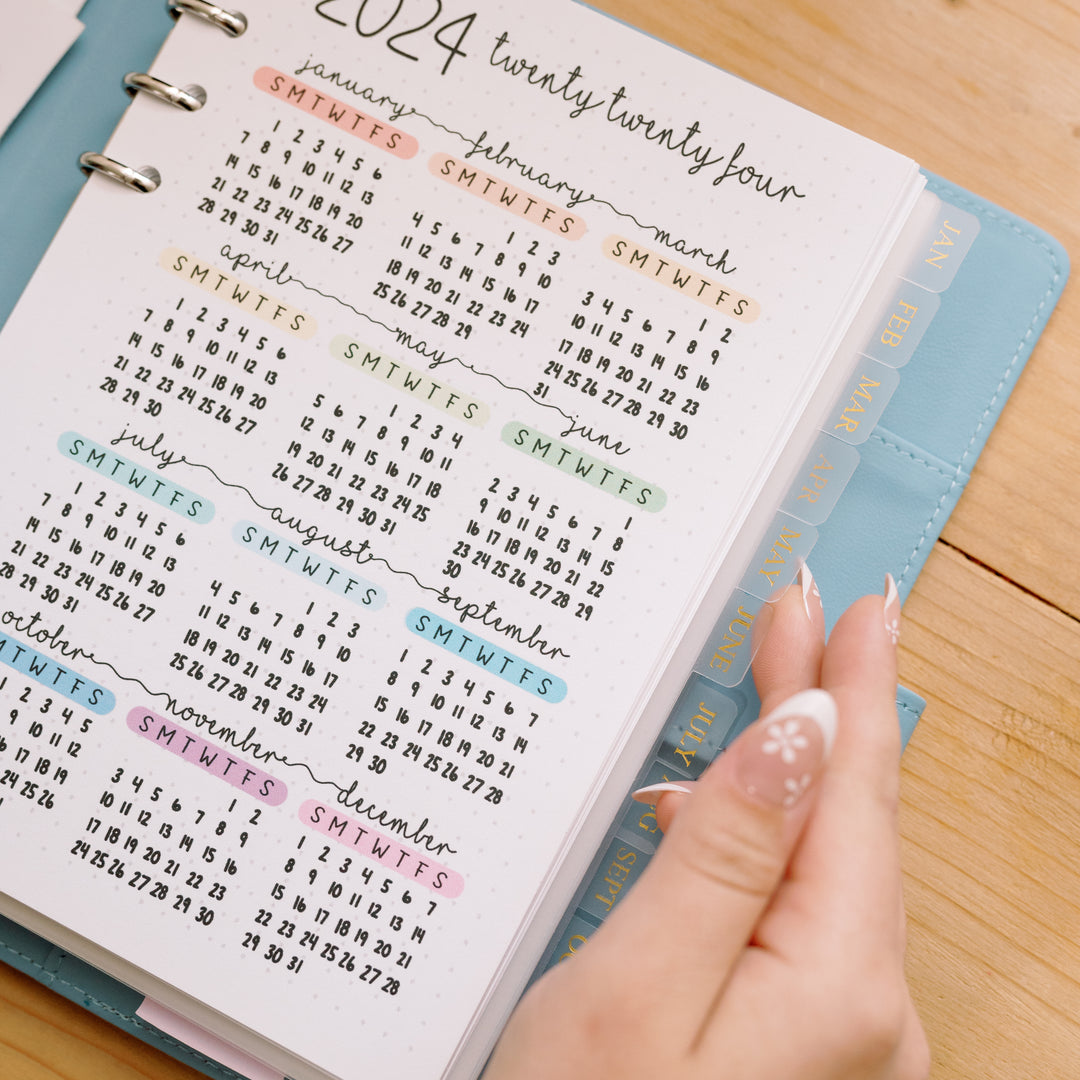 2024 twenty twenty four
january february march
S M T W T F S
1 2 3 4 5 6
7 8 9 10 11 12 13
14 15 16 17 18 19 20
21 22 23 24 25 26 27
28 29 30 31
S M T W T F S
1 2 3
4 5 6 7 8 9 10
11 12 13 14 15 16 17
18 19 20 21 22 23 24
25 26 27 28 29
S M T W T F S
1 2
3 4 5 6 7 8 9
10 11 12 13 14 15 16
17 18 19 20 21 22 23
24 25 26 27 28 29 30
31
april may june
S M T W T F S
1 2 3 4 5 6
7 8 9 10 11 12 13
14 15 16 17 18 19 20
21 22 23 24 25 26 27
28 29 30
S M T W T F S
1 2 3 4
5 6 7 8 9 10 11
12 13 14 15 16 17 18
19 20 21 22 23 24 25
26 27 28 29 30 31
S M T W T F S
1
2 3 4 5 6 7 8
9 10 11 12 13 14 15
16 17 18 19 20 21 22
23 24 25 26 27 28 29
30
july august september
S M T W T F S
1 2 3 4 5 6
7 8 9 10 11 12 13
14 15 16 17 18 19 20
21 22 23 24 25 26 27
28 29 30 31
S M T W T F S
1 2 3
4 5 6 7 8 9 10
11 12 13 14 15 16 17
18 19 20 21 22 23 24
25 26 27 28 29 30 31
S M T W T F S
1 2 3 4 5 6 7
8 9 10 11 12 13 14
15 16 17 18 19 20 21
22 23 24 25 26 27 28
29 30
october november december
M T W T F S
1 2 3 4 5
9 10 11 12
16 17 18 19
24 25 26
S M T W T F S
1 2
3 4 5 6 7 8 9
10 11 12 13 14 15 16
17 18 19 20 21 22 23
24 25 26 27 28 29 30
S M T W T F S
1 2 3 4 5 6 7
8 9 10 11 12 13 14
15 16 17 18 19 20 21
22 23 24 25 26 27 28
29 30 31
JAN
FEB
MAR
APR
MAY
JUNE
JULY
SEPT